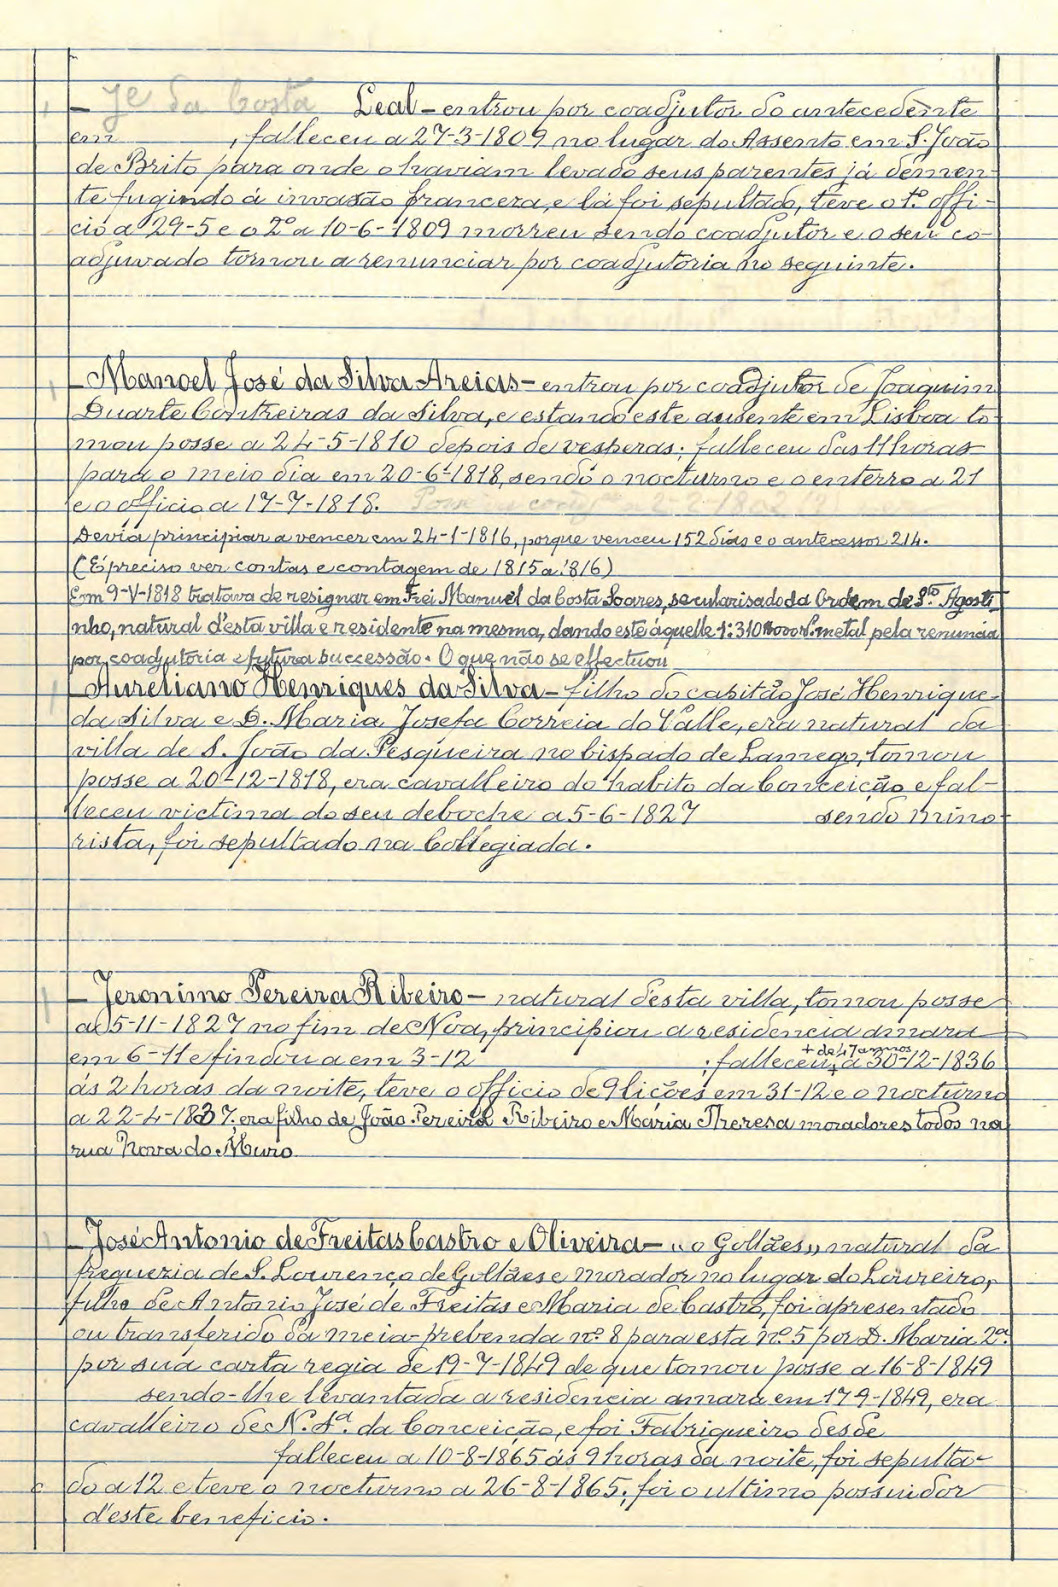 - Jé da Costa Leal - entrou por coadjutor do antecedente
em , falleceu a 27-3-1809 no lugar do Assento em S. João
de Brito para onde o haviam levado seus parentes já demen-
te fugindo á invasão franceza, e lá foi sepultado, teve o 1º offi-
cio a 29-5 e o 2º a 10-6-1809 morreu sendo coadjutor e o seu co-
adjuvado tornou a renunciar por coadjutoria no seguinte.
- Manoel José da Silva Areias - entrou por coadjutor de Joaquim
Duarte Contreiras da Silva, e estando este ausente em Lisboa to-
mou posse a 24-5-1810 depois de vesperas; falleceu das 11 horas
para o meio dia em 20-6-1818, sendo o nocturno e o enterro a 21
e o officio a 17-7-1818.
Devia principiar a vencer em 24-1-1816, porque venceu 152 dias e o antecessor 214.
(É preciso ver contas e contagem de 1815 a 1816)
Em 9-V-1818 tratava de resignar em Frei Manuel da Costa Soares, secularisado da Ordem de Sto. Agosti-
nho, natural d'esta villa e residente na mesma, dando este áquelle 1:310$000 rs. metal pela renuncia
por coadjutoria e futura successão. O que não se effectuou
- Aureliano Henriques da Silva - filho do capitão José Henriques
da Silva e D. Maria Josefa Correia do Valle, era natural da
villa de S. João da Pesqueira no bispado de Lamego, tomou
posse a 20-12-1818, era cavalleiro do habito da Conceição e fal-
leceu victima do seu deboche a 5-6-1827 sendo mino-
rista, foi sepultado na Collegiada.
- Jeronimo Pereira Ribeiro - natural desta villa, tomou posse
a 5-11-1827 no fim de Nôa, principiou a residencia amara
em 6-11 e findou a em 3-12 ; falleceu + de 47 annos a 30-12-1836
ás 2 horas da noite, teve o officio de 9 lições em 31-12 e o nocturno
a 22-4-1837; era filho de João Pereira Ribeiro e Maria Theresa moradores todos na
rua Nova do Muro.
- José Antonio de Freitas Castro e Oliveira - "o Gollães" natural da
freguezia de S. Lourenço de Gollães e morador no lugar do Loureiro,
filho de Antonio José de Freitas e Maria de Castro, foi apresentado
ou transferido da meia-prebenda nº. 8 para esta nº. 5 por D. Maria 2ª.
por sua carta regia de 19-7-1849 de que tomou posse a 16-8-1849
sendo-lhe levantada a residencia amara em 17-9-1849, era
cavalleiro de N. Sª. da Conceição, e foi Fabriqueiro desde
falleceu a 10-8-1865 ás 9 horas da noite, foi sepulta-
do a 12 e teve o nocturno a 26-8-1865; foi o ultimo possuidor
d'este beneficio.